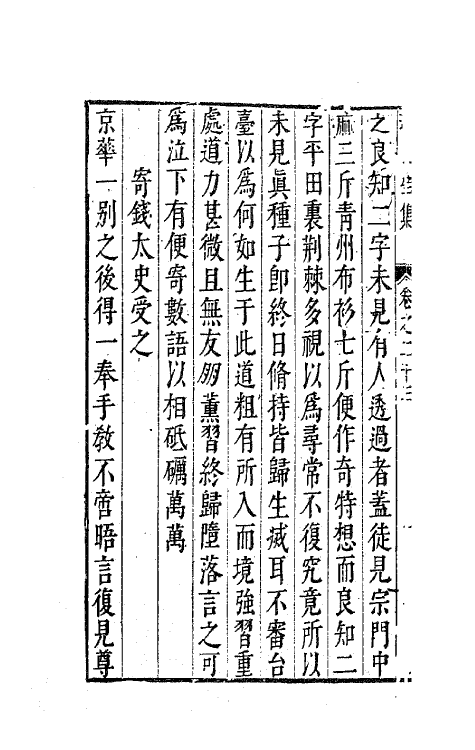 之良知二字未見有人透過者蓋徒見宗門中
麻三斤青州布衫七斤便作奇特想而良知二
字平田裏荆棘多視以爲尋常不復究竟所以
未見眞種子卽終日脩持皆歸生滅耳不審台
臺以爲何如生于此道粗有所入而境強習重
處道力甚微且無友朋薰習終歸墮落言之可
爲泣下有便寄數語以相砥礪萬萬
寄錢太史受之
京華一别之後得一奉手敎不啻晤言復見尊